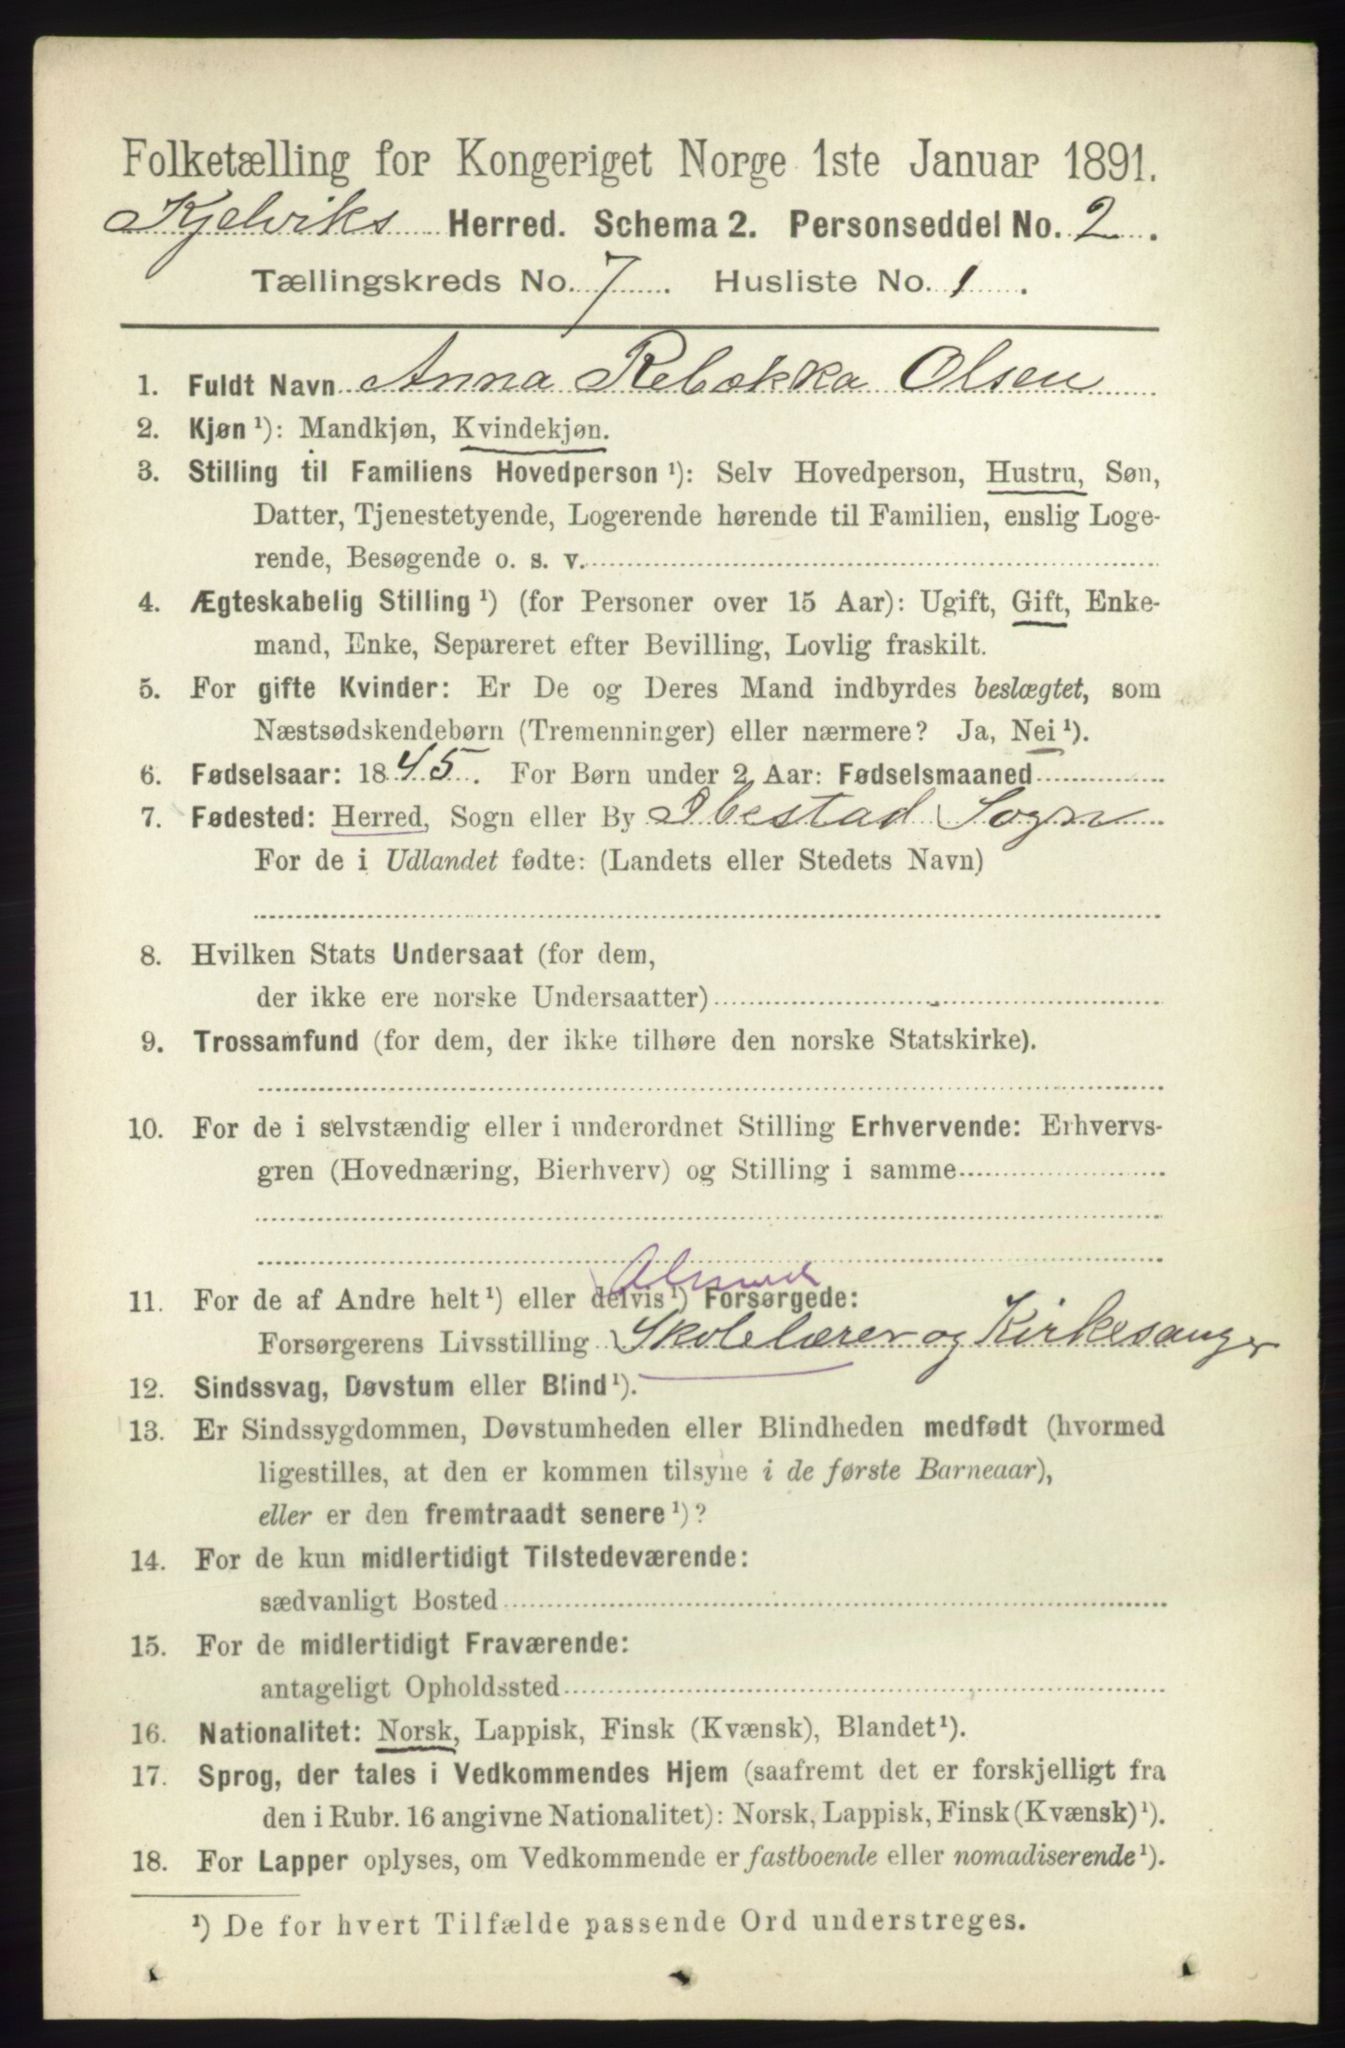 Folketælling for Kongeriget Norge 1ste Januar 1891.
Kjelviks Herred. Schema 2. Personseddel No. 2.
Tællingskreds No. 7. Husliste No. 1.
1. Fuldt Navn Anna Rebekka Olsen
2. Kjøn ¹): Mandkjøn, Kvindekjøn.
3. Stilling til Familiens Hovedperson ¹): Selv Hovedperson, Hustru, Søn,
Datter, Tjenestetyende, Logerende hørende til Familien, enslig Loge-
rende, Besøgende o. s. v.
4. Ægteskabelig Stilling ¹) (for Personer over 15 Aar): Ugift, Gift, Enke-
mand, Enke, Separeret efter Bevilling, Lovlig fraskilt.
5. For gifte Kvinder: Er De og Deres Mand indbyrdes beslægtet, som
Næstsødskendebørn (Tremenninger) eller nærmere? Ja, Nei ¹).
6. Fødselsaar: 1845. For Børn under 2 Aar: Fødselsmaaned
7. Fødested: Herred, Sogn eller By Ibestad Sogn
For de i Udlandet fødte: (Landets eller Stedets Navn)
8. Hvilken Stats Undersaat (for dem,
der ikke ere norske Undersaatter)
9. Trossamfund (for dem, der ikke tilhøre den norske Statskirke).
10. For de i selvstændig eller i underordnet Stilling Erhvervende: Erhvervs-
gren (Hovednæring, Bierhverv) og Stilling i samme
11. For de af Andre helt ¹) eller delvis ¹) Forsørgede:
Forsørgerens Livsstilling Skolelærer og Kirkesanger
12. Sindssvag, Døvstum eller Blind ¹).
13. Er Sindssygdommen, Døvstumheden eller Blindheden medfødt (hvormed
ligestilles, at den er kommen tilsyne i de første Barneaar),
eller er den fremtraadt senere ¹)?
14. For de kun midlertidigt Tilstedeværende:
sædvanligt Bosted
15. For de midlertidigt Fraværende:
antageligt Opholdssted
16. Nationalitet: Norsk, Lappisk, Finsk (Kvænsk), Blandet ¹).
17. Sprog, der tales i Vedkommendes Hjem (saafremt det er forskjelligt fra
den i Rubr. 16 angivne Nationalitet): Norsk, Lappisk, Finsk (Kvænsk) ¹).
18. For Lapper oplyses, om Vedkommende er fastboende eller nomadiserende ¹).
¹) De for hvert Tilfælde passende Ord understreges.